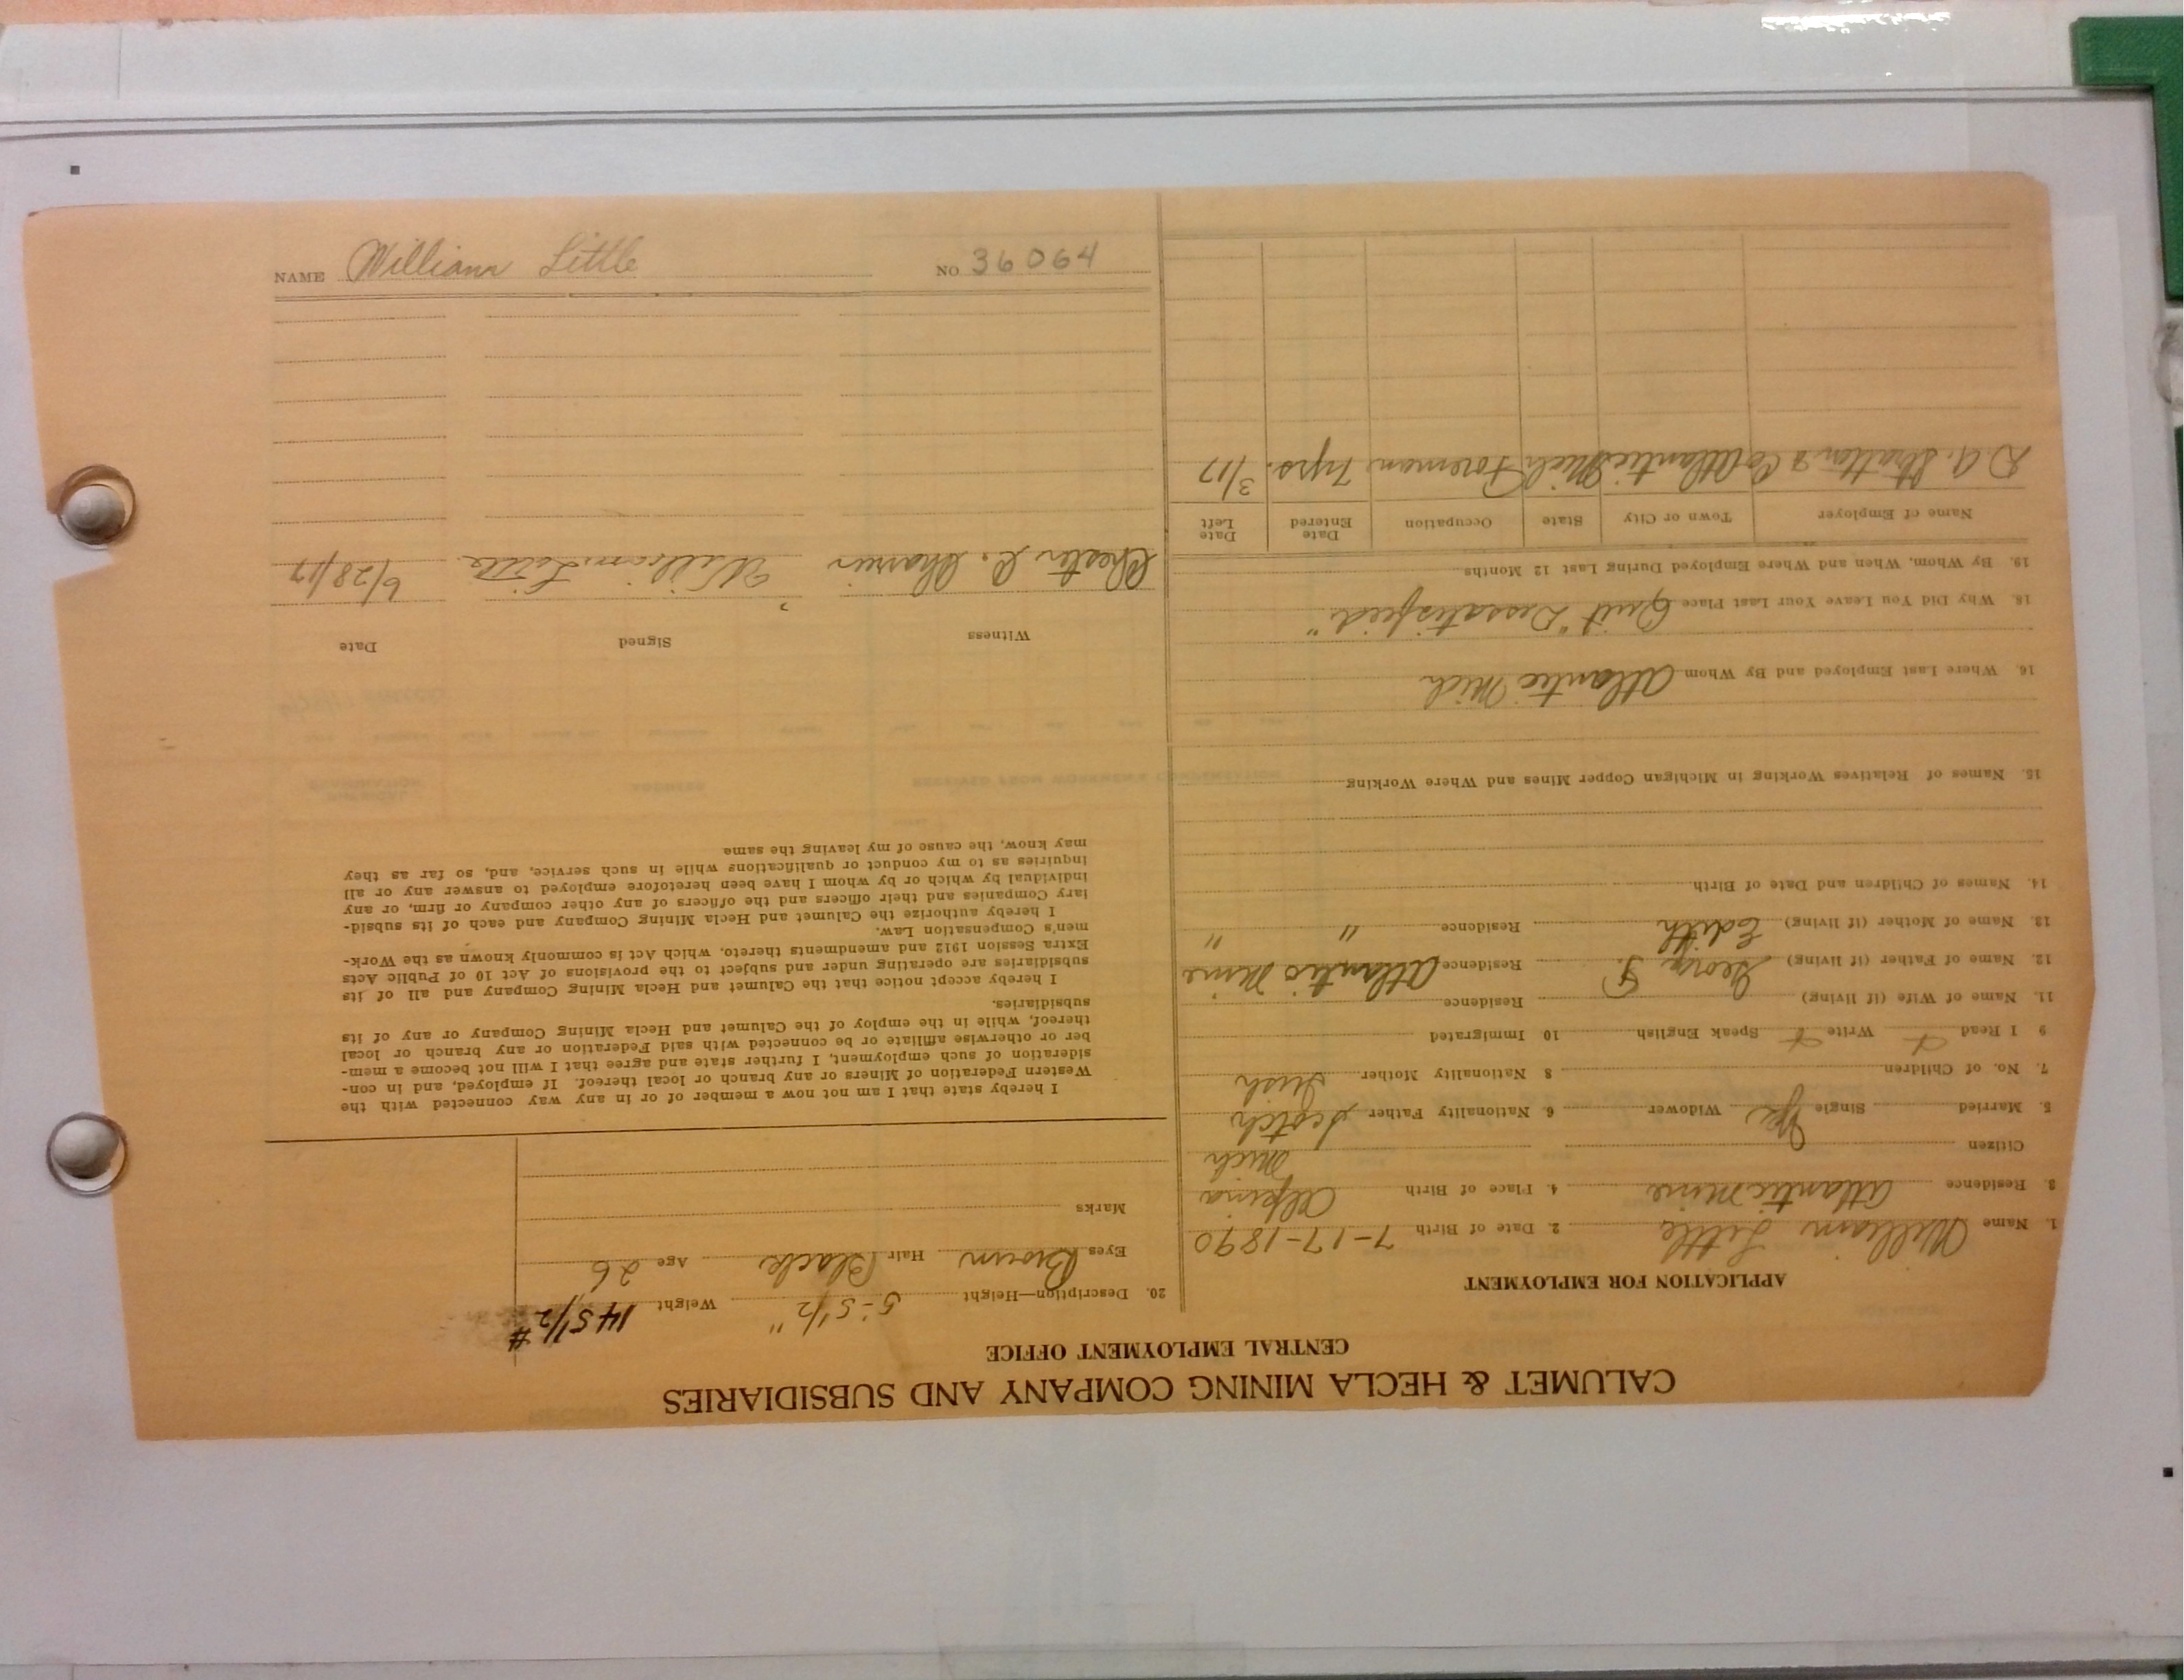 CALUMET & HECLA MINING COMPANY AND SUBSIDIARIES
CENTRAL EMPLOYMENT OFFICE
APPLICATION FOR EMPLOYMENT
1. Name William Little 2. Date of Birth 7-17-1890
3. Residence Atlantic Mine 4. Place of Birth Alpina
Mich
Citizen
5. Married Single Yes Widower 6. Nationality Father Scotch
7. No. of Children 8 Nationality Mother Irish
9 I Read Write Speak English 10 Immigrated
11. Name of Wife (if living) Residence
12. Name of Father (if living) George F. Residence Atlantic Mine
13. Name of Mother (if living) Edith Residence " "
14. Names of Children and Date of Birth
15. Names of Relatives Working in Michigan Copper Mines and Where Working
16. Where Last Employed and By Whom Atlantic Mich
18. Why Did You Leave Your Last Place Quit "Dissatisfied"
19. By Whom, When and Where Employed During Last 12 Months
Name of Employer Town or City State Occupation Date Entered Date Left
D. A. Stratton & Co Atlantic Mich Foreman 7 yrs. 3/17
20. Description—Height 5-5 1/2" Weight 145 1/2 #
Eyes Brown Hair Black Age 26
Marks
I hereby state that I am not now a member of or in any way connected with the
Western Federation of Miners or any branch or local thereof. If employed, and in con-
sideration of such employment, I further state and agree that I will not become a mem-
ber or otherwise affiliate or be connected with said Federation or any branch or local
thereof, while in the employ of the Calumet and Hecla Mining Company or any of its
subsidiaries.
I hereby accept notice that the Calumet and Hecla Mining Company and all of its
subsidiaries are operating under and subject to the provisions of Act 10 of Public Acts
Extra Session 1912 and amendments thereto, which Act is commonly known as the Work-
men's Compensation Law.
I hereby authorize the Calumet and Hecla Mining Company and each of its subsid-
iary Companies and their officers and the officers of any other company or firm, or any
individual by which or by whom I have been heretofore employed to answer any or all
inquiries as to my conduct or qualifications while in such service, and, so far as they
may know, the cause of my leaving the same
Witness Signed Date
Chester C. William Little 6/28/17
NAME William Little NO 36064